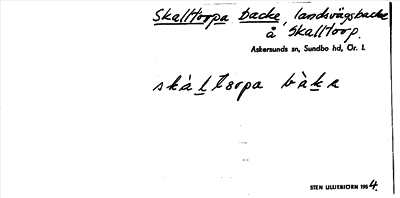 Skalltorpa backe, landsvägsbacke
å Skalltorp.
Askersunds sn, Sundbo hd, Ör. l.
skàltorpa bàkə
STEN LILJEBJÖRN 1954.